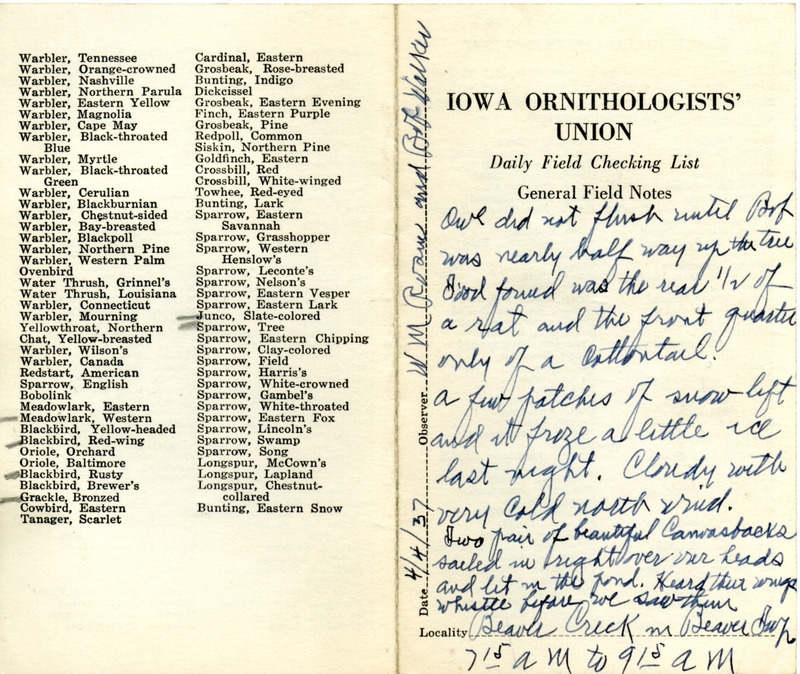 Warbler, Tennessee
Warbler, Orange-crowned
Warbler, Nashville
Warbler, Northern Parula
Warbler, Eastern Yellow
Warbler, Magnolia
Warbler, Cape May
Warbler, Black-throated
Blue
Warbler, Myrtle
Warbler, Black-throated
Green
Warbler, Cerulian
Warbler, Blackburnian
Warbler, Chestnut-sided
Warbler, Bay-breasted
Warbler, Blackpoll
Warbler, Northern Pine
Warbler, Western Palm
Ovenbird
Water Thrush, Grinnel's
Water Thrush, Louisiana
Warbler, Connecticut
Warbler, Mourning
Yellowthroat, Northern
Chat, Yellow-breasted
Warbler, Wilson's
Warbler, Canada
Redstart, American
Sparrow, English
Bobolink
Meadowlark, Eastern
Meadowlark, Western
Blackbird, Yellow-headed
Blackbird, Red-wing
Oriole, Orchard
Oriole, Baltimore
Blackbird, Rusty
Blackbird, Brewer's
Grackle, Bronzed
Cowbird, Eastern
Tanager, Scarlet
Cardinal, Eastern
Grosbeak, Rose-breasted
Bunting, Indigo
Dickcissel
Grosbeak, Eastern Evening
Finch, Eastern Purple
Grosbeak, Pine
Redpoll, Common
Siskin, Northern Pine
Goldfinch, Eastern
Crossbill, Red
Crossbill, White-winged
Towhee, Red-eyed
Bunting, Lark
Sparrow, Eastern
Savannah
Sparrow, Grasshopper
Sparrow, Western
Henslow's
Sparrow, Leconte's
Sparrow, Nelson's
Sparrow, Eastern Vesper
Sparrow, Eastern Lark
Junco, Slate-colored
Sparrow, Tree
Sparrow, Eastern Chipping
Sparrow, Clay-colored
Sparrow, Field
Sparrow, Harris's
Sparrow, White-crowned
Sparrow, Gambel's
Sparrow, White-throated
Sparrow, Eastern Fox
Sparrow, Lincoln's
Sparrow, Swamp
Sparrow, Song
Longspur, McCown's
Longspur, Lapland
Longspur, Chestnut-
collared
Bunting, Eastern Snow
Date 4/4/37 Observer W M Rosene and Bob Walker
IOWA ORNITHOLOGISTS'
UNION
Daily Field Checking List
General Field Notes
Owl did not flush until Bob
was nearly half way up the tree
Food found was the rear 1/2 of
a rat and the front quarter
only of a Cottontail.
a few patches of snow left
and it froze a little ice
last night. Cloudy with
very cold north wind.
Two pair of beautiful Canvasbacks
sailed in right over our heads
and lit in the pond. Heard their wings
whistle before we saw them
Locality Beaver Creek in Beaver Twp
7 15 A M to 9 15 A M